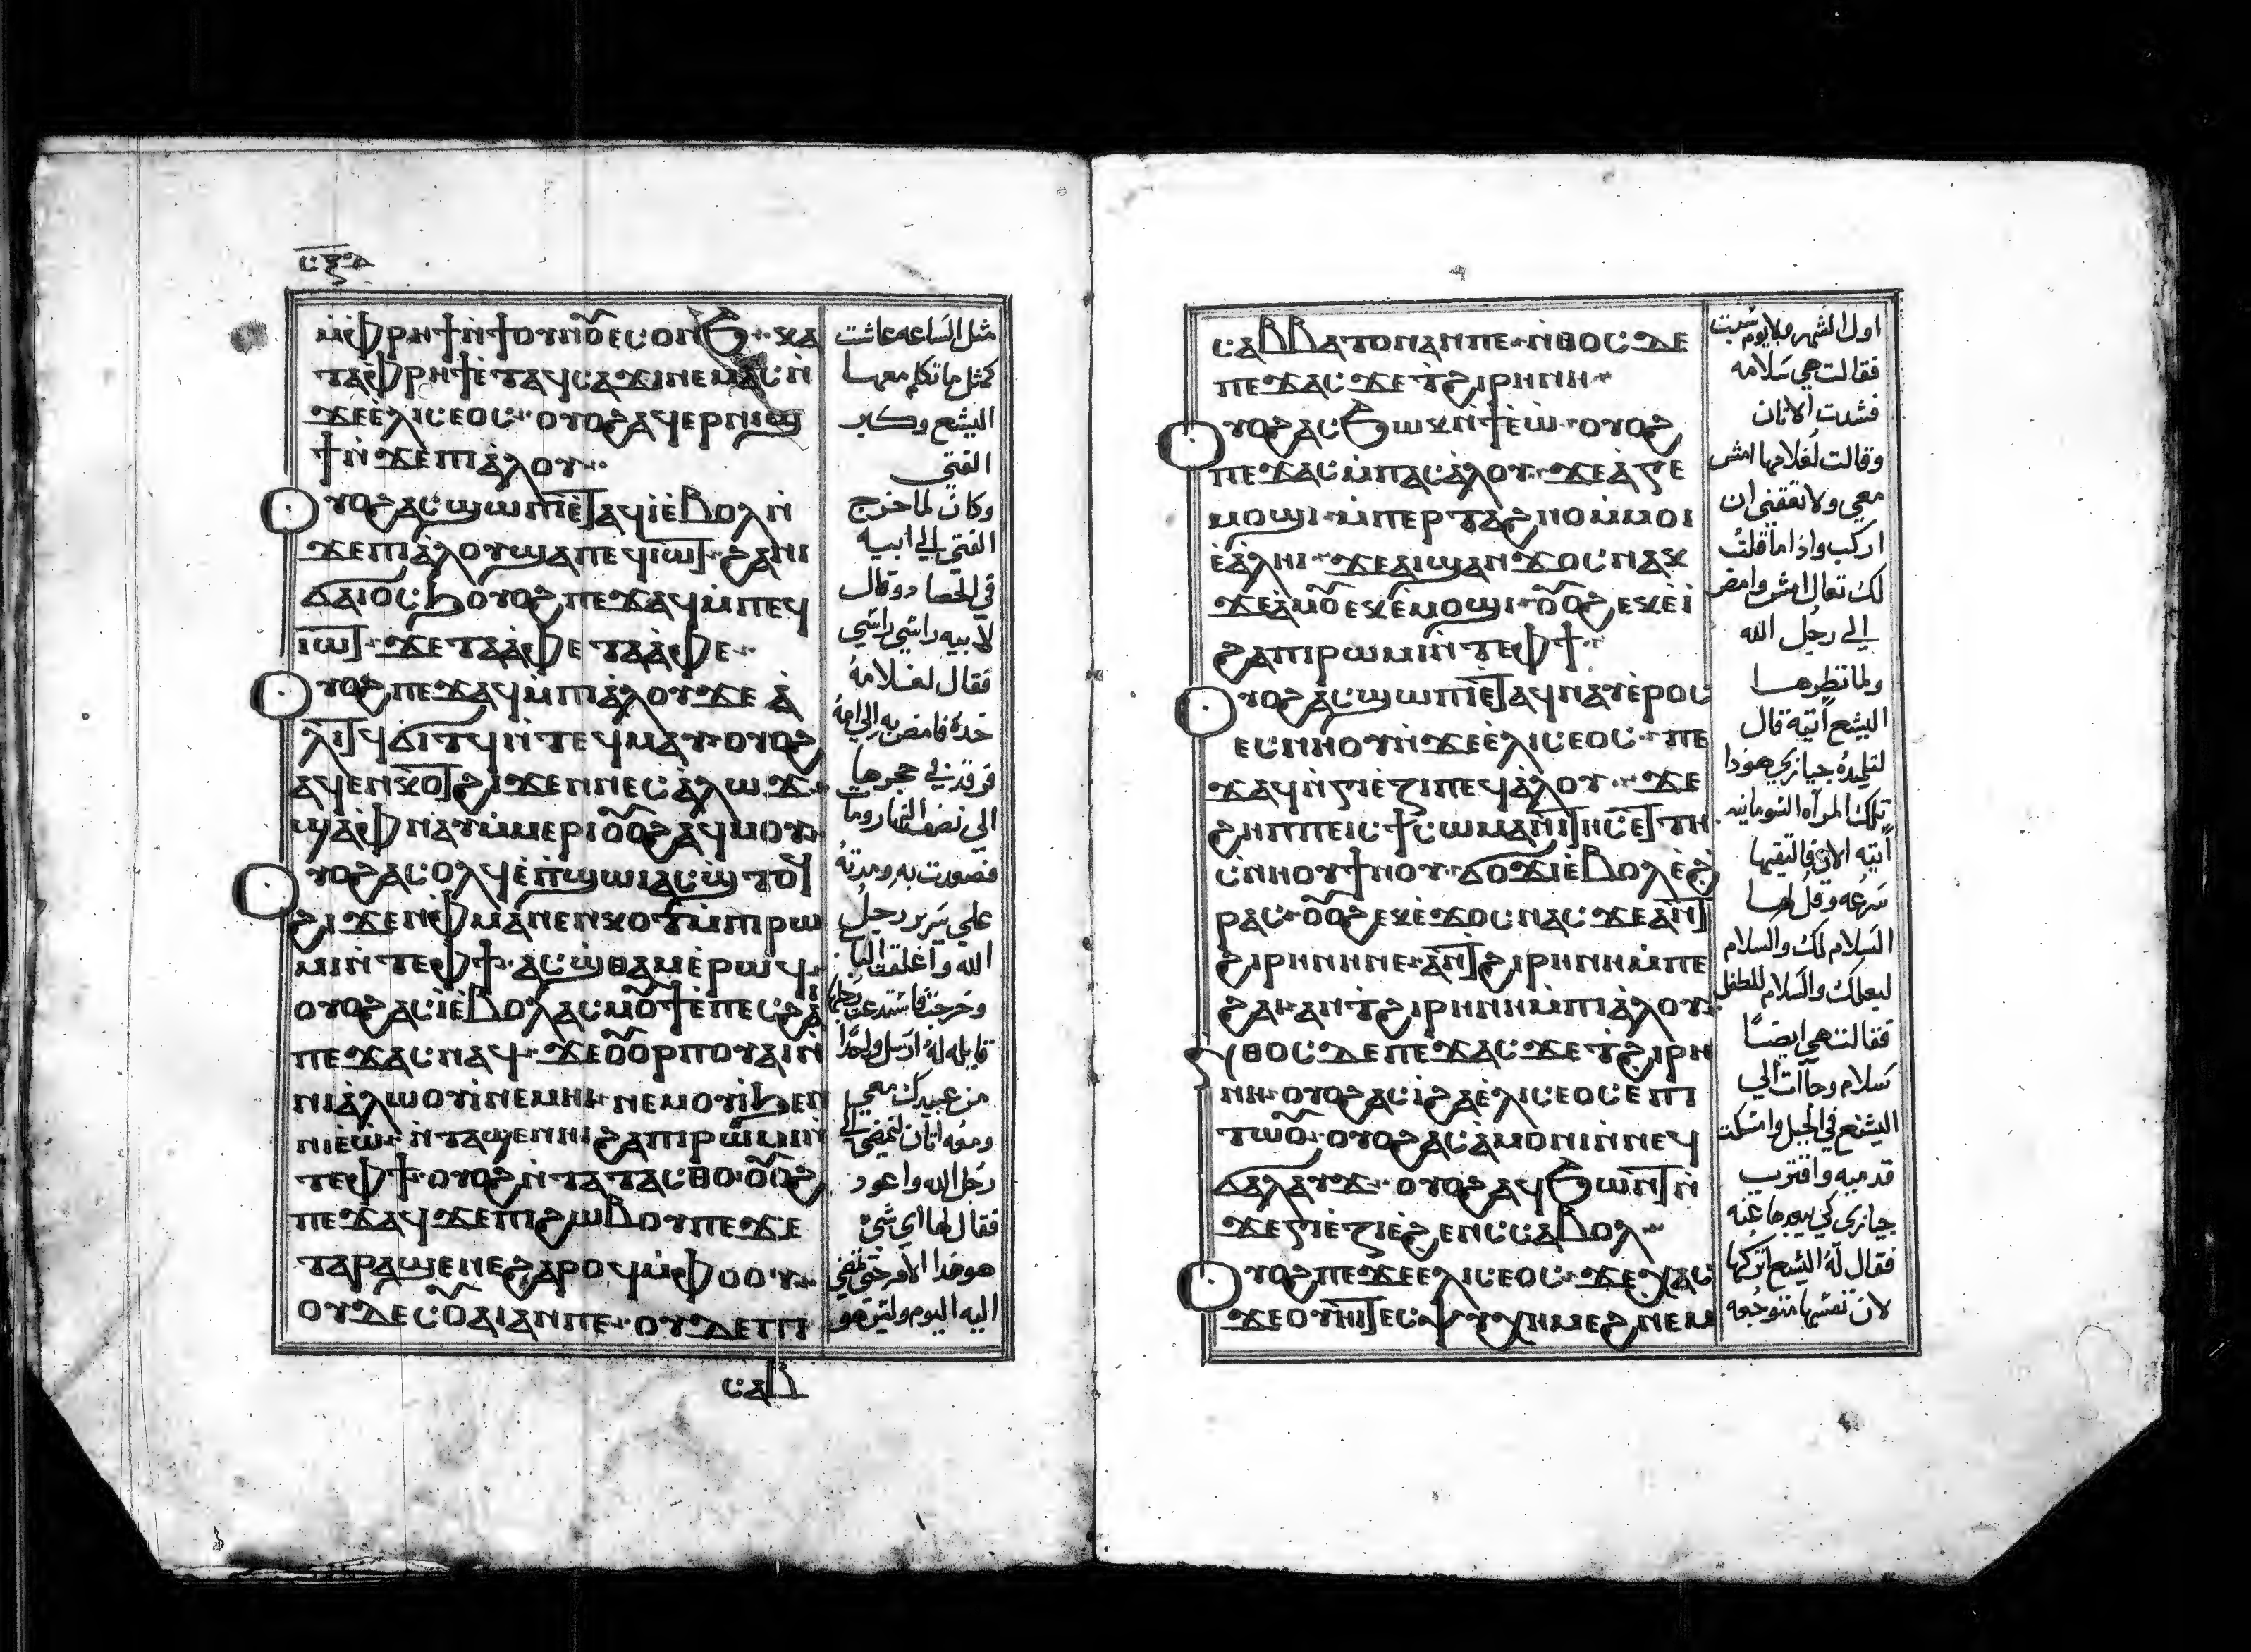 ⲥⲝⲇ
ⲙ̀ⲫⲣⲏϯ ⲛ̀ϯⲟⲩⲛⲟ̅ⲉⲥⲟⲛϧ · ⲕⲁ
ⲧⲁⲫⲣⲏϯ ⲉ̀ⲧⲁϥⲥⲁϫⲓ ⲛⲉⲙⲁⲥ ⲛ̀
ϫⲉ ⲉ̀ⲗⲓⲥⲉⲟⲥ · ⲟⲩⲟϩ ⲁϥⲉⲣⲛⲓϣ
ϯ ⲛ̀ϫⲉ ⲡⲓⲁ̀ⲗⲟⲩ ·
ⲟⲩⲟϩ ⲁⲥϣⲱⲡⲓ ⲉ̀ⲧⲁϥⲓ̀ ⲉ̀ⲃⲟⲗ ⲛ̀
ϫⲉ ⲡⲓⲁ̀ⲗⲟⲩ ϣⲁ ⲡⲉϥⲓⲱⲧ · ϩⲁ ⲛⲓ
ϭⲁⲓⲟⲥϧ ⲟⲩⲟϩ ⲡⲉϫⲁϥ ⲙ̀ⲡⲉϥ
ⲓⲱⲧ · ϫⲉ ⲧⲁⲁ̀ⲫⲉ ⲧⲁⲁ̀ⲫⲉ ·
ⲟⲩⲟϩ ⲡⲉϫⲁϥ ⲙ̀ⲡⲓⲁ̀ⲗⲟⲩ ϫⲉ ⲁ̀
ⲗⲓⲧϥ ϭⲓⲧϥ ⲛ̀ⲧⲉϥⲙⲁⲩ ⲟⲩⲟϩ
ⲁϥⲉⲛⲕⲟⲧ ϩⲓϫⲉⲛ ⲛⲉⲥⲁ̀ⲗⲱϫ ·
ϣⲁ ⲫⲛⲁⲩ ⲙ̀ⲙⲉⲣⲓ ⲟ̅ⲟ̅ϩ ⲁϥⲙⲟⲩ
ⲟⲩⲟϩ ⲁⲥⲟⲗϥ ⲉ̀ⲡ̀ϣⲱⲓ ⲁⲥϣⲧⲟϥ
ϩⲓϫⲉⲛ ⲫⲙⲁ̀ⲛⲉⲛⲕⲟⲧ ⲙ̀ⲡⲓⲣⲱ
ⲙⲓ ⲛ̀ⲧⲉ ⲫϯ · ⲁⲥϣⲑⲁⲙ ⲉ̀ⲣⲱϥ ·
ⲟⲩⲟϩ ⲁⲥⲓ̀ ⲉ̀ⲃⲟⲗ ⲁⲥⲙⲟ̅ϯ ⲉ̀ⲡⲉⲥϩⲁⲓ
ⲡⲉϫⲁⲥ ⲛⲁϥ · ϫⲉ ⲟ̅ⲟ̅ⲣⲡ ⲟⲩⲁⲓ ⲛ̀
ⲛⲓⲁ̀ⲗⲱⲟⲩⲓ̀ ⲛⲉⲙⲏⲓ · ⲛⲉⲙ ⲟⲩⲓ̀ ϧⲉⲛ
ⲛⲓⲉ̀ⲱ · ⲛ̀ⲧⲁϣⲉⲛⲏⲓ ϩⲁ ⲡⲓⲣⲱⲙⲓ ⲛ̀
ⲧⲉ ⲫϯ · ⲟⲩⲟϩ ⲛ̀ⲧⲁⲧⲁⲥⲑⲟ · ⲟ̅ⲟ̅ϩ
ⲡⲉϫⲁϥ ϫⲉ ⲡⲓϩⲱⲃ ⲟⲩ ⲡⲉ ϫⲉ
ⲧⲁⲣⲁϣⲉⲛⲉ ϩⲁⲣⲟϥ ⲙ̀ⲫⲟⲟⲩ ·
ⲟⲩⲇⲉ ⲥⲟ̅ⲁⲓ ⲁⲛ ⲡⲉ · ⲟⲩⲇⲉ ⲡⲓ
ⲥⲁⲃ
مثل الساعه عاشت
كمثل ما تكلم معها
اليشع وكبر
الفتى
وكان لما خرج
الفتى الى ابيه
في الحصاد وقال
لابيه راسي راسي
فقال لغلامه
خده فامض به الى امه
فرقد في حجرها
الى نصف النهار ومات
فصورت به ومدته
على سرير رجل
الله واغلقت الباب
وخرجت فاستدعت بعلها
قايله له ارسل واحدا
من عبيدك معي
ومعه اتان لامضي الى
رجل الله واعود
فقال لها اي شي
هو هدا الامر حتى تمضي
اليه اليوم وليس هو
ⲥⲁⲃⲃⲁⲧⲟⲛ ⲁⲛ ⲡⲉ · ⲛ̀ⲑⲟⲥ ⲇⲉ
ⲡⲉϫⲁⲥ ϫⲉ ⲧϩⲓⲣⲏⲛⲏ ·
ⲟⲩⲟϩ ⲁⲥϭⲱⲕ ⲛ̀ϯⲉ̀ⲱ · ⲟⲩⲟϩ
ⲡⲉϫⲁⲥ ⲙ̀ⲡⲁⲥⲁ̀ⲗⲟⲩ · ϫⲉ ⲁ̀ϭⲉ
ⲙⲟϣⲓ · ⲙ̀ⲡⲉⲣⲧⲁϩⲛⲟ ⲙ̀ⲙⲟⲓ
ⲉ̀ⲁ̀ⲗⲏⲓ · ϫⲉ ⲁⲓϣⲁⲛϫⲟⲥ ⲛⲁⲕ
ϫⲉ ⲁ̀ⲙⲟ̅ ⲉⲕⲉ̀ⲙⲟϣⲓ · ⲟ̅ⲟ̅ϩ ⲉⲕⲉ̀ⲓ̀
ϩⲁ ⲡⲓⲣⲱⲙⲓ ⲛ̀ⲧⲉ ⲫϯ ·
ⲟⲩⲟϩ ⲁⲥϣⲱⲡⲓ ⲉ̀ⲧⲁϥⲛⲁⲩ ⲉ̀ⲣⲟⲥ
ⲉⲥⲛⲏⲟⲩ ⲛ̀ϫⲉ ⲉ̀ⲗⲓⲥⲉⲟⲥ · ⲡⲉ
ϫⲁϥ ⲛ̀ϭⲓⲉ̀ⲍⲓ ⲡⲉϥⲁ̀ⲗⲟⲩ · ϫⲉ
ϩⲏⲡⲡⲉ ⲓⲥ ϯⲥⲱⲙⲁⲛⲓⲧⲏⲥ ⲉ̀ⲧⲏ
ⲥⲛⲏⲟⲩ ϯⲛⲟⲩ · ϭⲟϫⲓ ⲉ̀ⲃⲟⲗ ⲉ̀ϩ
ⲣⲁⲥ · ⲟ̅ⲟ̅ϩ ⲉⲕⲉ̀ϫⲟⲥ ⲛⲁⲥ ϫⲉ ⲁⲛ ⲧ
ϩⲓⲣⲏⲛⲏ ⲛⲉ · ⲁⲛ ⲧϩⲓⲣⲏⲛⲏ ⲙ̀ⲡⲉ
ϩⲁⲓ ⲁⲛ ⲧϩⲓⲣⲏⲛⲏ ⲙ̀ⲡⲓⲁ̀ⲗⲟⲩ ·
ⲛ̀ⲑⲟⲥ ⲇⲉ ⲡⲉϫⲁⲥ ϫⲉ ⲧϩⲓⲣⲏ
ⲛⲏ · ⲟⲩⲟϩ ⲁⲥⲓ̀ ϩⲁ ⲉ̀ⲗⲓⲥⲉⲟⲥ ⲉ̀ⲡⲓ
ⲧⲱⲟ̅ · ⲟⲩⲟϩ ⲁⲥⲁ̀ⲙⲟⲛⲓ ⲛ̀ⲛⲉϥ
ϭⲁⲗⲁⲩϫ · ⲟⲩⲟϩ ⲁϥϧⲱⲛⲧ ⲛ̀
ϫⲉ ϭⲓⲉ̀ⲍⲓ ⲉ̀ϩⲉⲛⲥ ⲥⲁⲃⲟⲗ ·
ⲟⲩⲟϩ ⲡⲉϫⲉ ⲉⲗⲓⲥⲉⲟⲥ · ϫⲉ ⲭⲁⲥ
ϫⲉ ⲟⲩⲏⲓ ⲧⲉⲥⲯⲩⲭⲏ ⲙⲉϩ ⲛⲉⲙ
اول الشهر ولا يوم سبت
فقالت هي سلامه
فشدت الاتان
وقالت لغلامها امش
معي ولا تعقني ان
اركب واذا ما قلت
لك تعال امش وامض
الى رجل الله
ولما نظرها
اليشع اتيه قال
لتلميده جيازي هودا
تلك المراه السومانيه
اتيه الان فالتقيها
سرعه وقل لها
السلام لك والسلام
لبعلك والسلام للطفل
فقالت هي ايضا
سلام وجاات الى
اليشع في الجبل وامسكت
قدميه واقترب
جيازي كي يبعدها عنه
فقال له اليشع اتركها
لان نفسها متوجعه